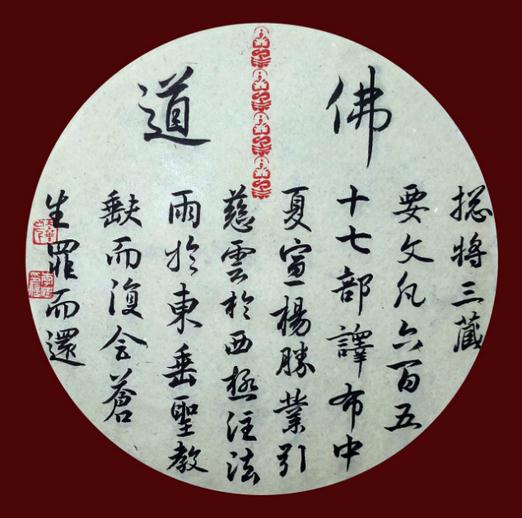 佛道
揔將三藏
要文凡六百五
十七部譯布中
夏宣揚勝業引
慈雲於西極注法
雨於東垂聖教
缺而復全蒼
生罪而還